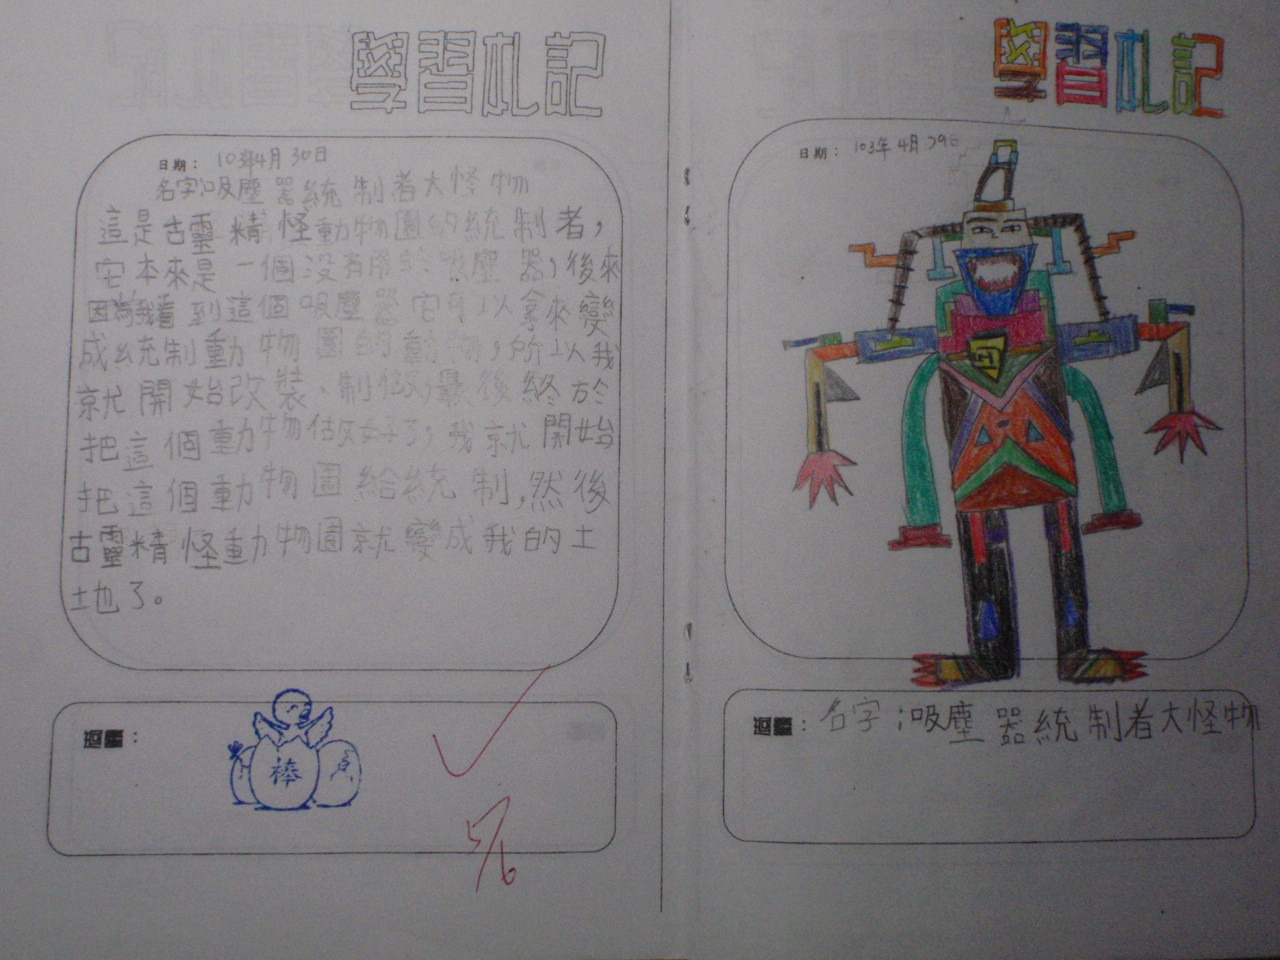 學習札記
日期： 103年4月30日
名字：吸塵器統制者大怪物
這是古靈精怪動物園的統制者，
它本來是一個沒有用的吸塵器，後來
因為我看到這個吸塵器它可以拿來變
成統制動物園的動物，所以我
就開始改裝、制做，最後終於
把這個動物做好了，我就開始
把這個動物園給統制，然後
古靈精怪動物園就變成我的土
土地了。
迴響：
棒
5/6
學習札記
日期： 103年4月29日
迴響： 名字：吸塵器統制者大怪物